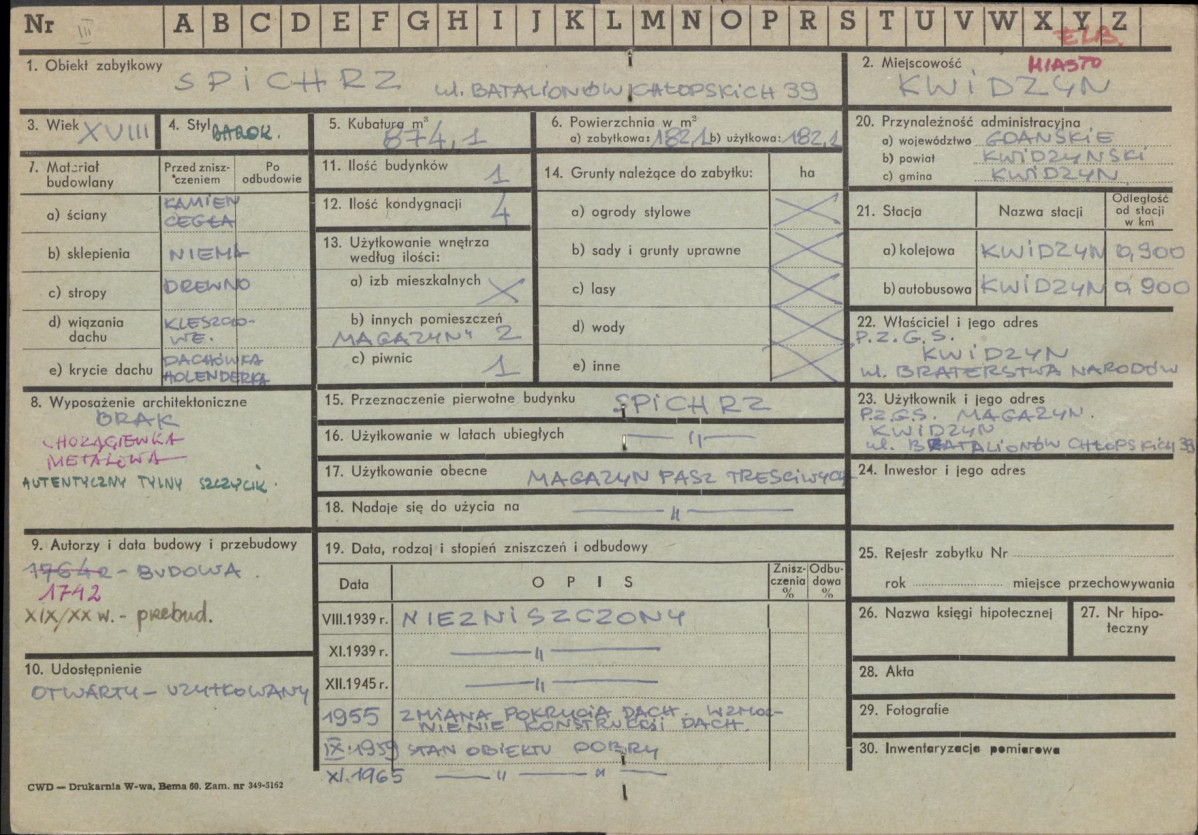 Nr III A B C D E F G H I J K L M N O P R S T U V W X Y Z
ELB.
1. Obiekt zabytkowy
SPICHRZ ul. BATALIONÓW CHŁOPSKICH 39
2. Miejscowość MIASTO
KWIDZYN
3. Wiek XVIII
4. Styl BAROK.
5. Kubatura m³
874,1
6. Powierzchnia w m²
a) zabytkowa: 182,1 b) użytkowa: 182,1
20. Przynależność administracyjna
a) województwo GDAŃSKIE
b) powiat KWIDZYŃSKI
c) gmina KWIDZYN
7. Materiał budowlany
Przed zniszczeniem
Po odbudowie
a) ściany KAMIEŃ
CEGŁA
b) sklepienia NIEMA
c) stropy DREWNO
d) wiązania dachu KLESZCZO-
WE.
e) krycie dachu DACHÓWKA
HOLENDERKA
11. Ilość budynków 1
12. Ilość kondygnacji 4
13. Użytkowanie wnętrza
według ilości:
a) izb mieszkalnych
b) innych pomieszczeń
MAGAZYN" 2
c) piwnic 1
14. Grunty należące do zabytku: ha
a) ogrody stylowe
b) sady i grunty uprawne
c) lasy
d) wody
e) inne
21. Stacja
Nazwa stacji
Odległość
od stacji
w km
a) kolejowa KWIDZYN 0,900
b) autobusowa KWIDZYN 0,900
22. Właściciel i jego adres
P.Z.G.S.
KWIDZYN
ul. BRATERSTWA NARODÓW
8. Wyposażenie architektoniczne
BRAK
CHORĄGIEWKA
METALOWA
AUTENTYCZNY TYLNY SZCZYCIK.
15. Przeznaczenie pierwotne budynku SPICHRZ
16. Użytkowanie w latach ubiegłych — " —
17. Użytkowanie obecne MAGAZYN PASZ TREŚCIWYCH
18. Nadaje się do użycia na — " —
23. Użytkownik i jego adres
P.Z.G.S. MAGAZYN.
KWIDZYN
ul. BATALIONÓW CHŁOPSKICH 39
24. Inwestor i jego adres
9. Autorzy i data budowy i przebudowy
1764 r - BUDOWA.
1742
XIX/XX w. - przebud.
10. Udostępnienie
OTWARTY - UŻYTKOWANY
19. Data, rodzaj i stopień zniszczeń i odbudowy
Data
OPIS
Znisz-
czenia
%
Odbu-
dowa
%
VIII.1939 r. NIEZNISZCZONY
XI.1939 r. — " —
XII.1945 r. — " —
1955 ZMIANA POKRYCIA DACH. WZMOC-
NIENIE KONSTRUKCJI DACH.
IX.1959 STAN OBIEKTU DOBRY
XI.1965 — " — " —
25. Rejestr zabytku Nr
rok miejsce przechowywania
26. Nazwa księgi hipotecznej
27. Nr hipo-
teczny
28. Akta
29. Fotografie
30. Inwentaryzacja pomiarowa
CWD — Drukarnia W-wa, Bema 60. Zam. nr 349-5162